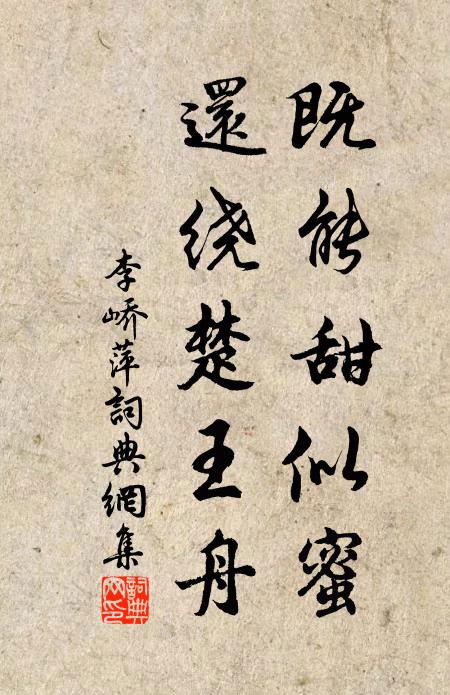 既能甜似蜜
還绕楚王舟
李峤萍詞典網集
詞典
网印